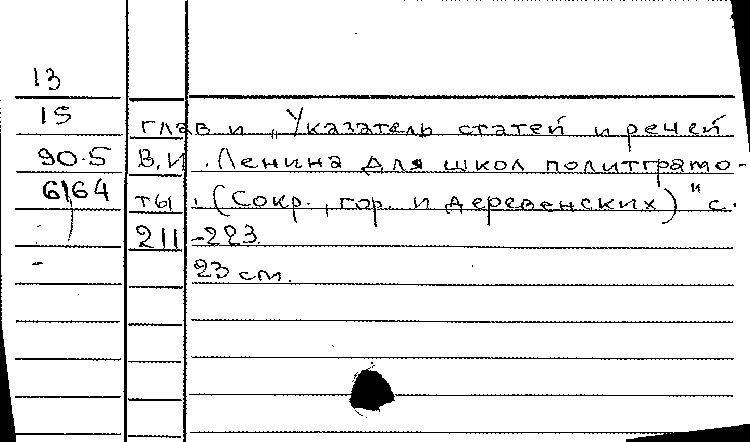 13
15
глав и „Указатель статей и речей
90.5 В.И. Ленина для школ политграмо-
6164 ты. (Сокр., гор. и деревенских)" с.
211-223
23 cm.